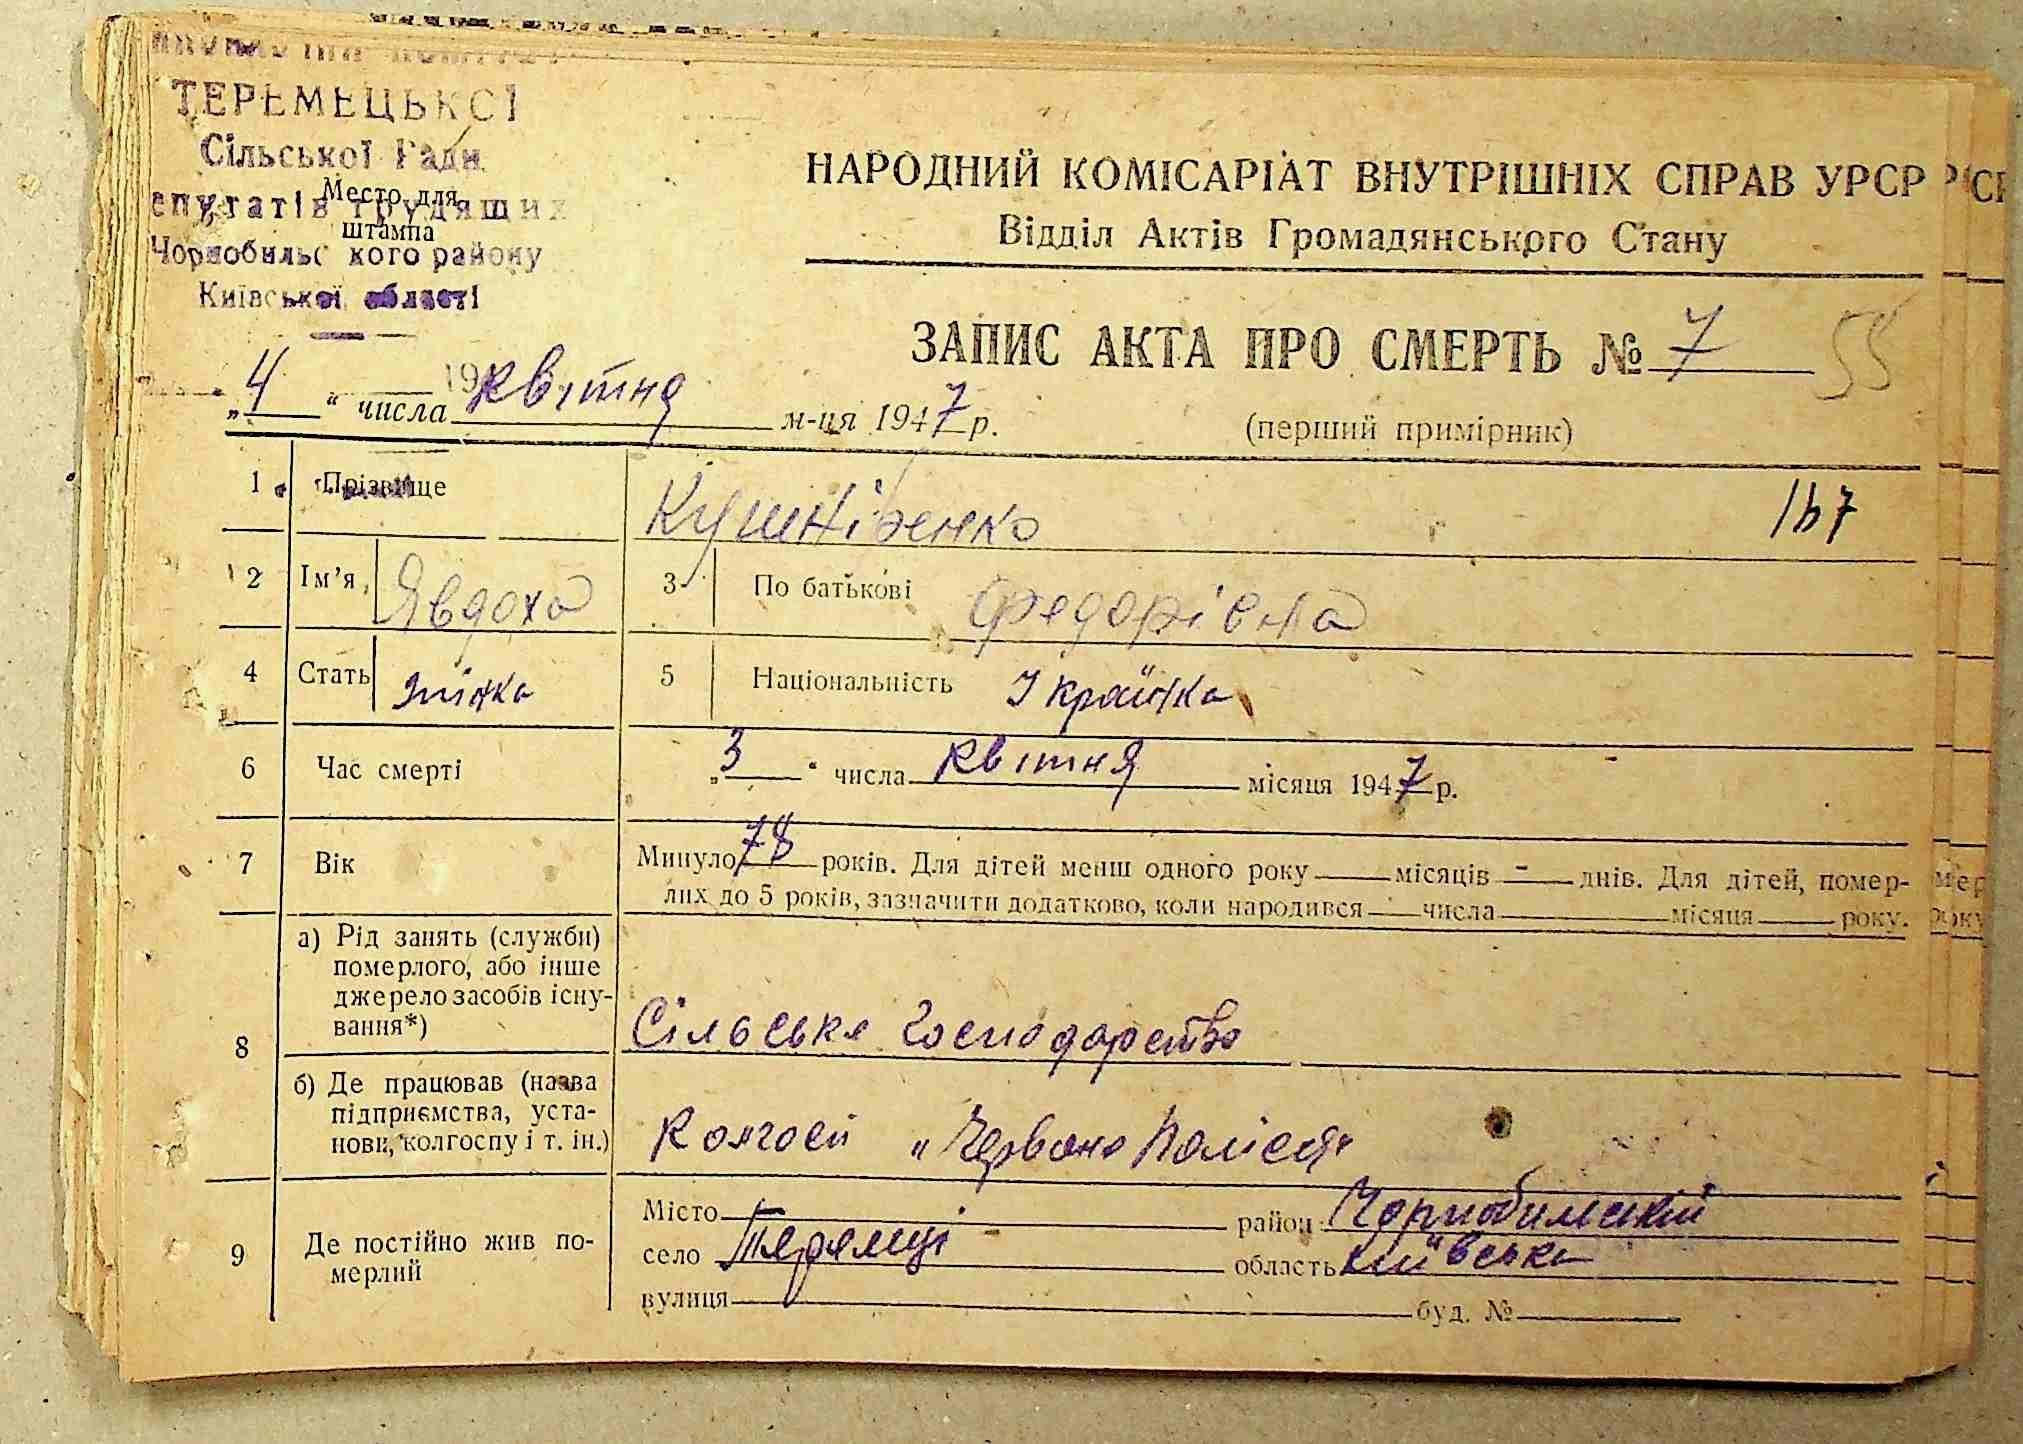 ТЕРЕМЕЦЬКОЇ
Сільської Ради
епутатів трудящих
Место для
штампа
Чорнобильс кого району
Київської області
НАРОДНИЙ КОМІСАРІАТ ВНУТРІШНІХ СПРАВ УРСР
Відділ Актів Громадянського Стану
ЗАПИС АКТА ПРО СМЕРТЬ № 7 55
„4“ числа квітня м-ця 1947 р.
(перший примірник)
1 Прізвище Кушніренко 167
2 Ім’я Явдоха 3 По батькові Федорівна
4 Стать жінка 5 Національність Українка
6 Час смерті „3“ числа квітня місяця 1947 р.
7 Вік Минуло 78 років. Для дітей менш одного року місяців - днів. Для дітей, помер-
лих до 5 років, зазначити додатково, коли народився числа місяця року.
8 а) Рід занять (служби)
померлого, або інше
джерело засобів існу-
вання*)
Сільське господарство
б) Де працював (назва
підприємства, уста-
нови, колгоспу і т. ін.)
Колгосп „Червоне Полісся“
9 Де постійно жив по-
мерлий
Місто район Чорнобильський
село Теремці область Київська
вулиця буд. №